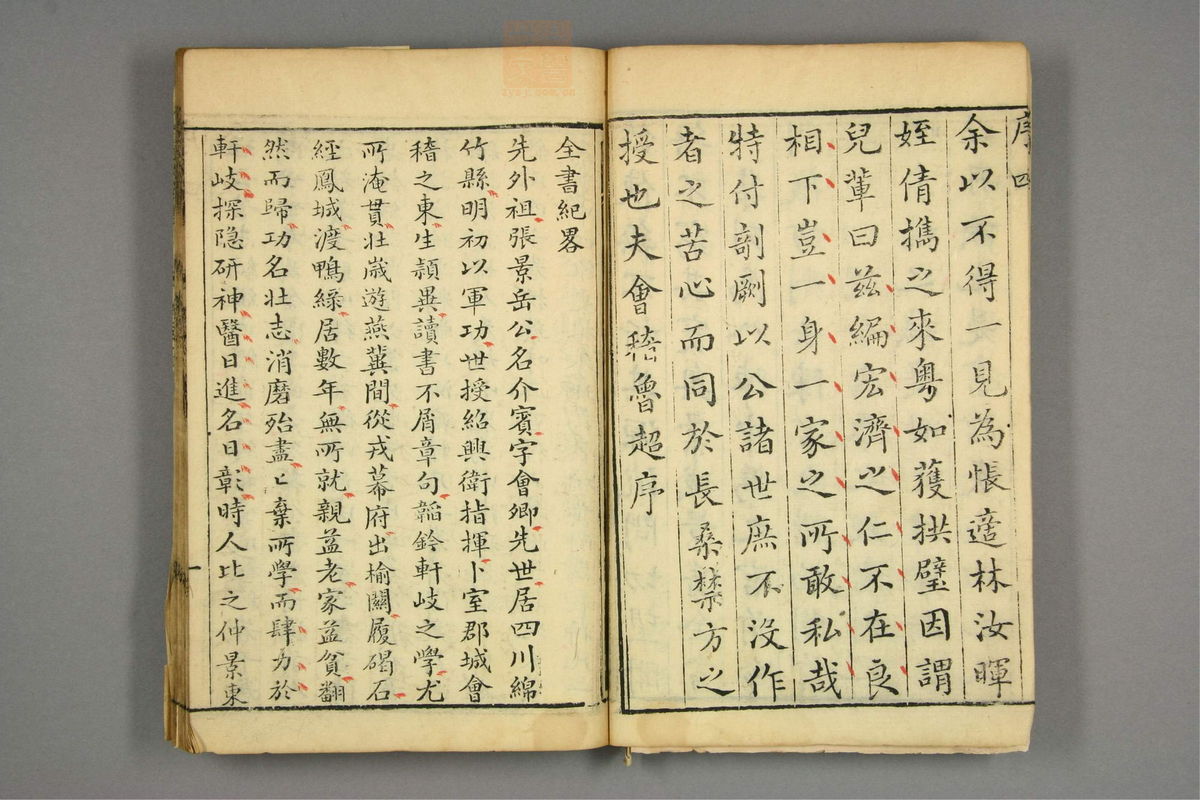 序四
余以不得一見為悵適林汝暉
姪倩攜之來粵如獲拱璧因謂
兒輩曰玆編宏濟之仁不在良
相下豈一身一家之所敢私哉
特付剞劂以公諸世庶不沒作
者之苦心而同於長桑禁方之
授也夫會稽魯超序
全書紀畧
先外祖張景岳公名介賓字會卿先世居四川綿
竹縣明初以軍功世授紹興衛指揮卜室郡城會
稽之東生頴異讀書不屑章句韜鈐軒岐之學尤
所淹貫壯歲遊燕冀間從戎幕府出榆關履碣石
經鳳城渡鴨綠居數年無所就親益老家益貧翻
然而歸功名壯志消磨殆盡〻棄所學而肆力於
軒岐探隐研神醫日進名日彰時人比之仲景東
一